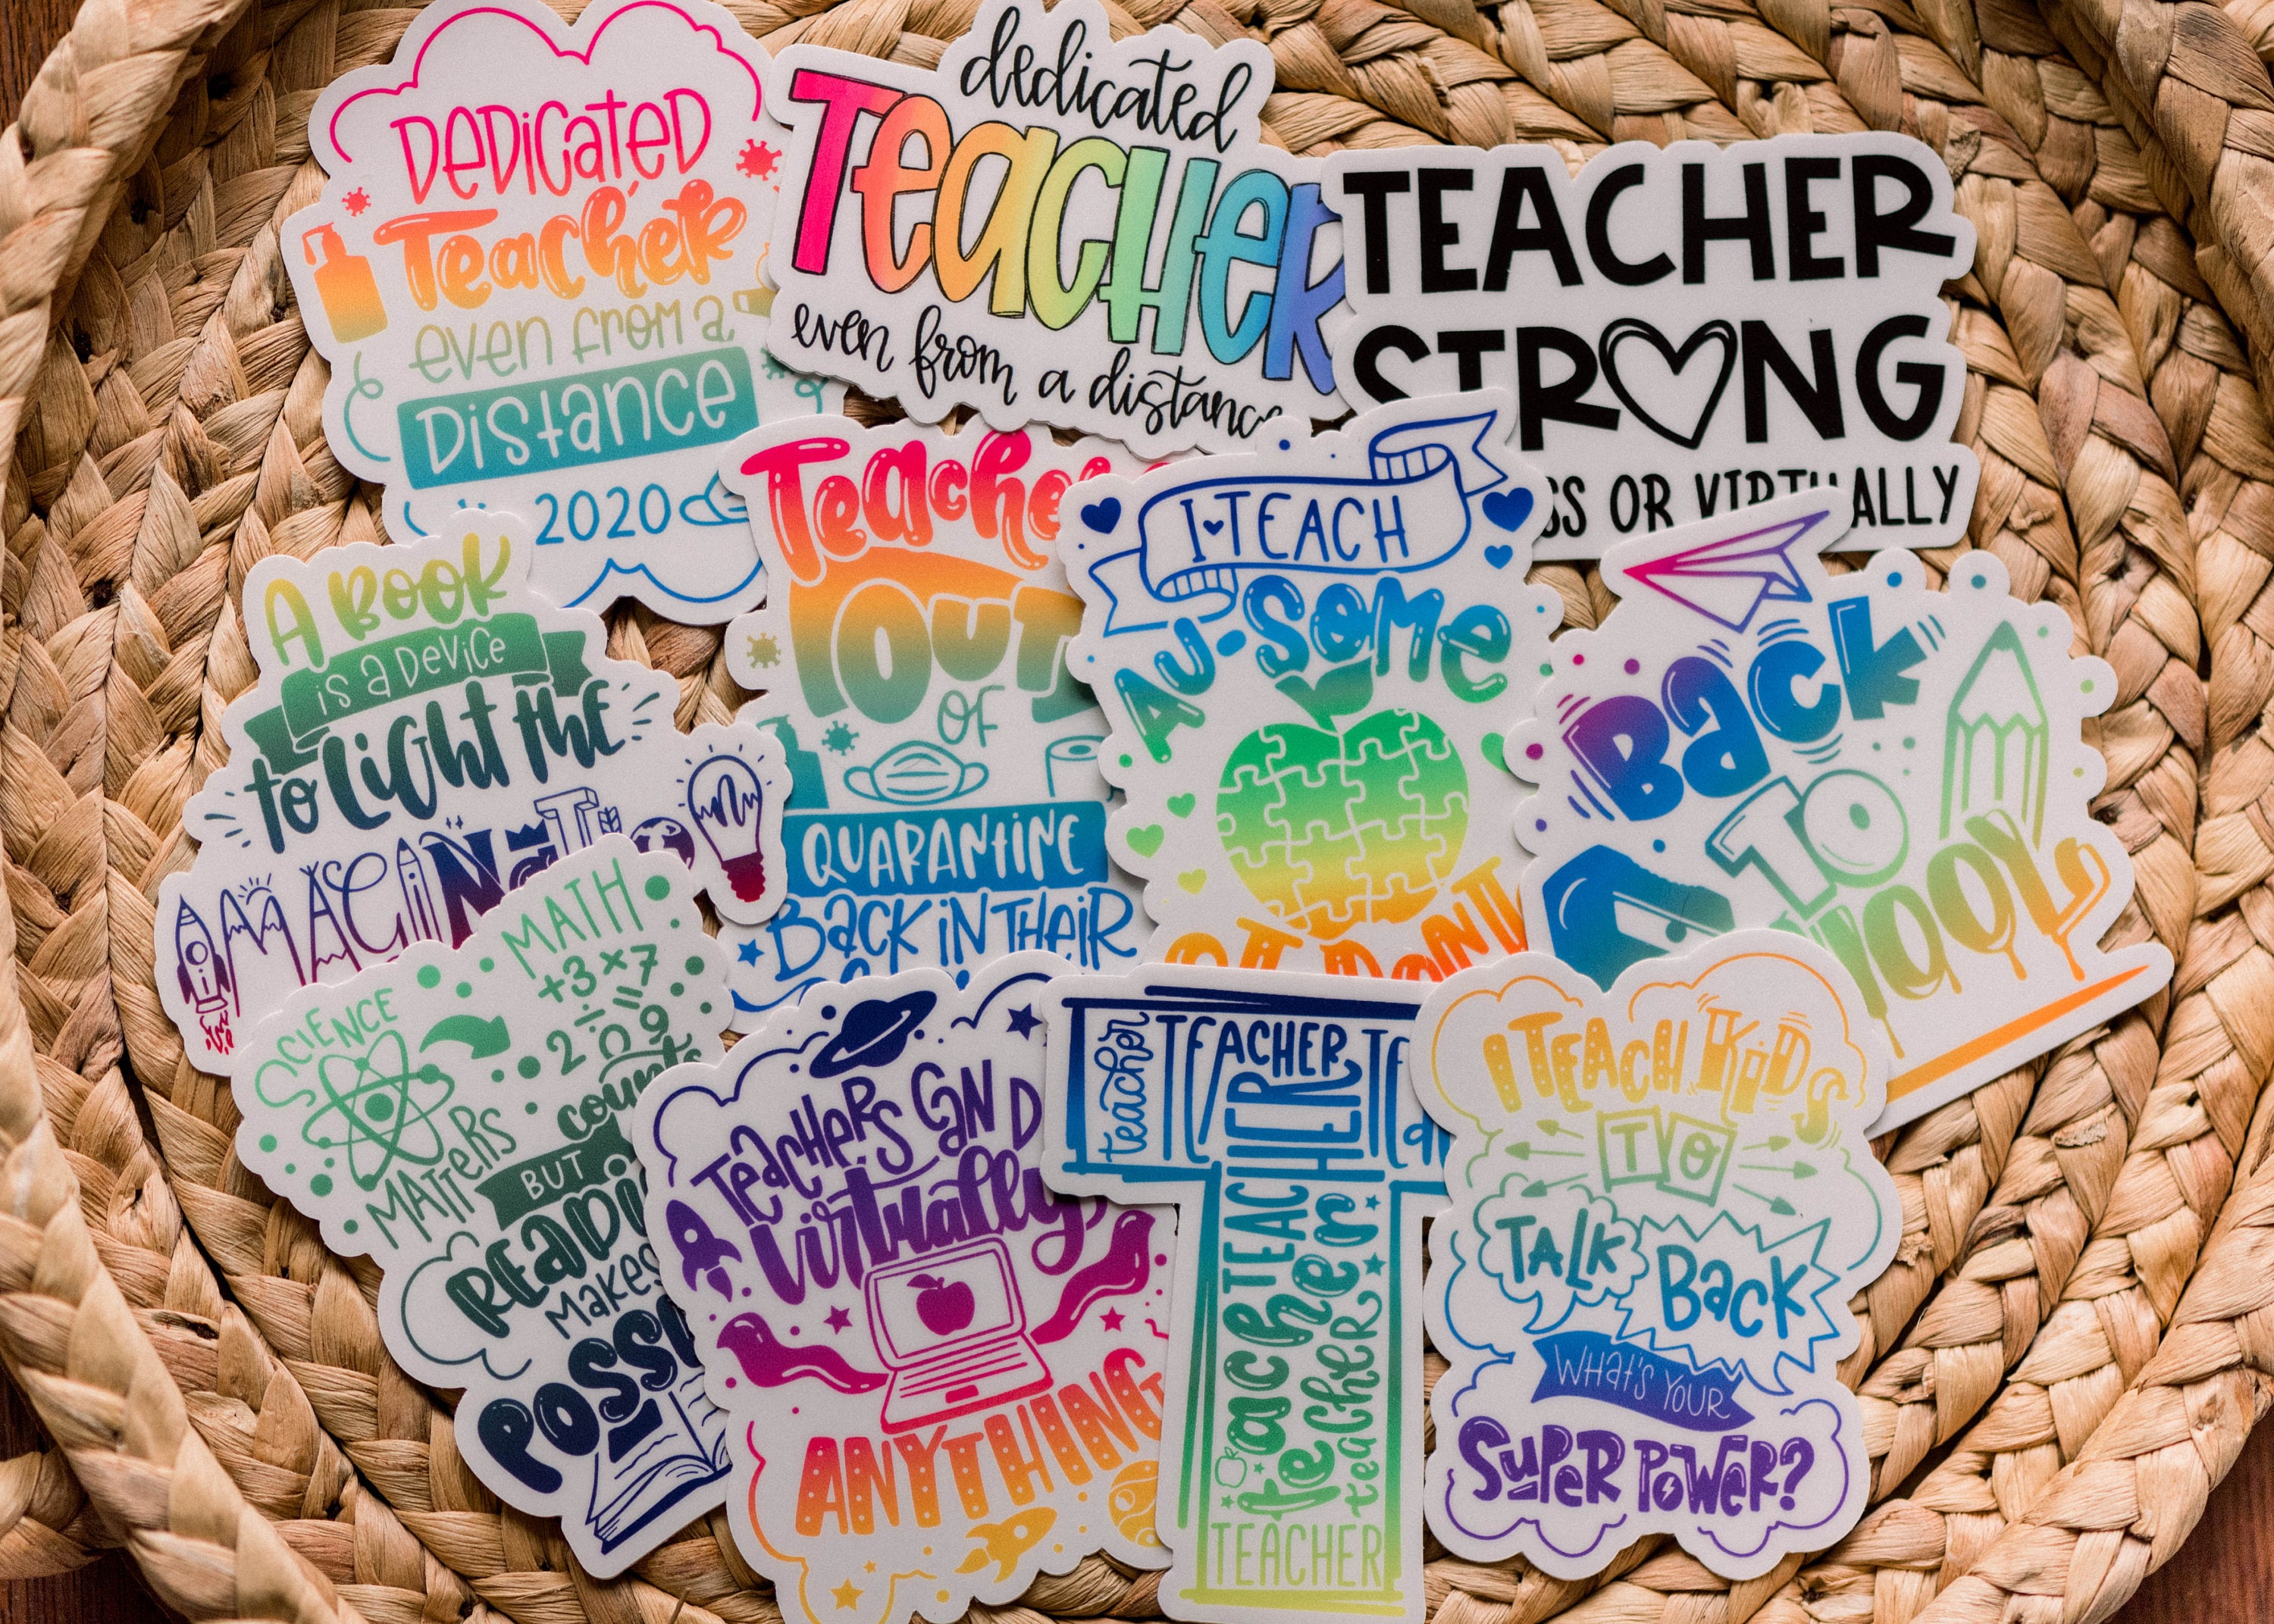 DEDicated
Teacher
even from a
Distance
2020
dedicated
TEacHER
even from a distance
TEACHER
STRONG
OR VIRTUALLY
A BOOK
is a Device
to Light the
IMAGINATION
Teacher
OUT
OF
QUARANTINE
BACK IN THEIR
I TEACH
AU-SOME
Back
TO
SCHOOL
SCIENCE
MATTERS
MATH
+3×7
2÷=9
counts
BUT
READING
makes
POSSI
Teachers can D
virtually
ANYTHING
teacher
TEACHER
TEACHER
TEACHER
teacher
teacher
teacher
TEACHER
I TEACH KIDS
TO
TALK
Back
WHAT'S YOUR
SUPER POWER?